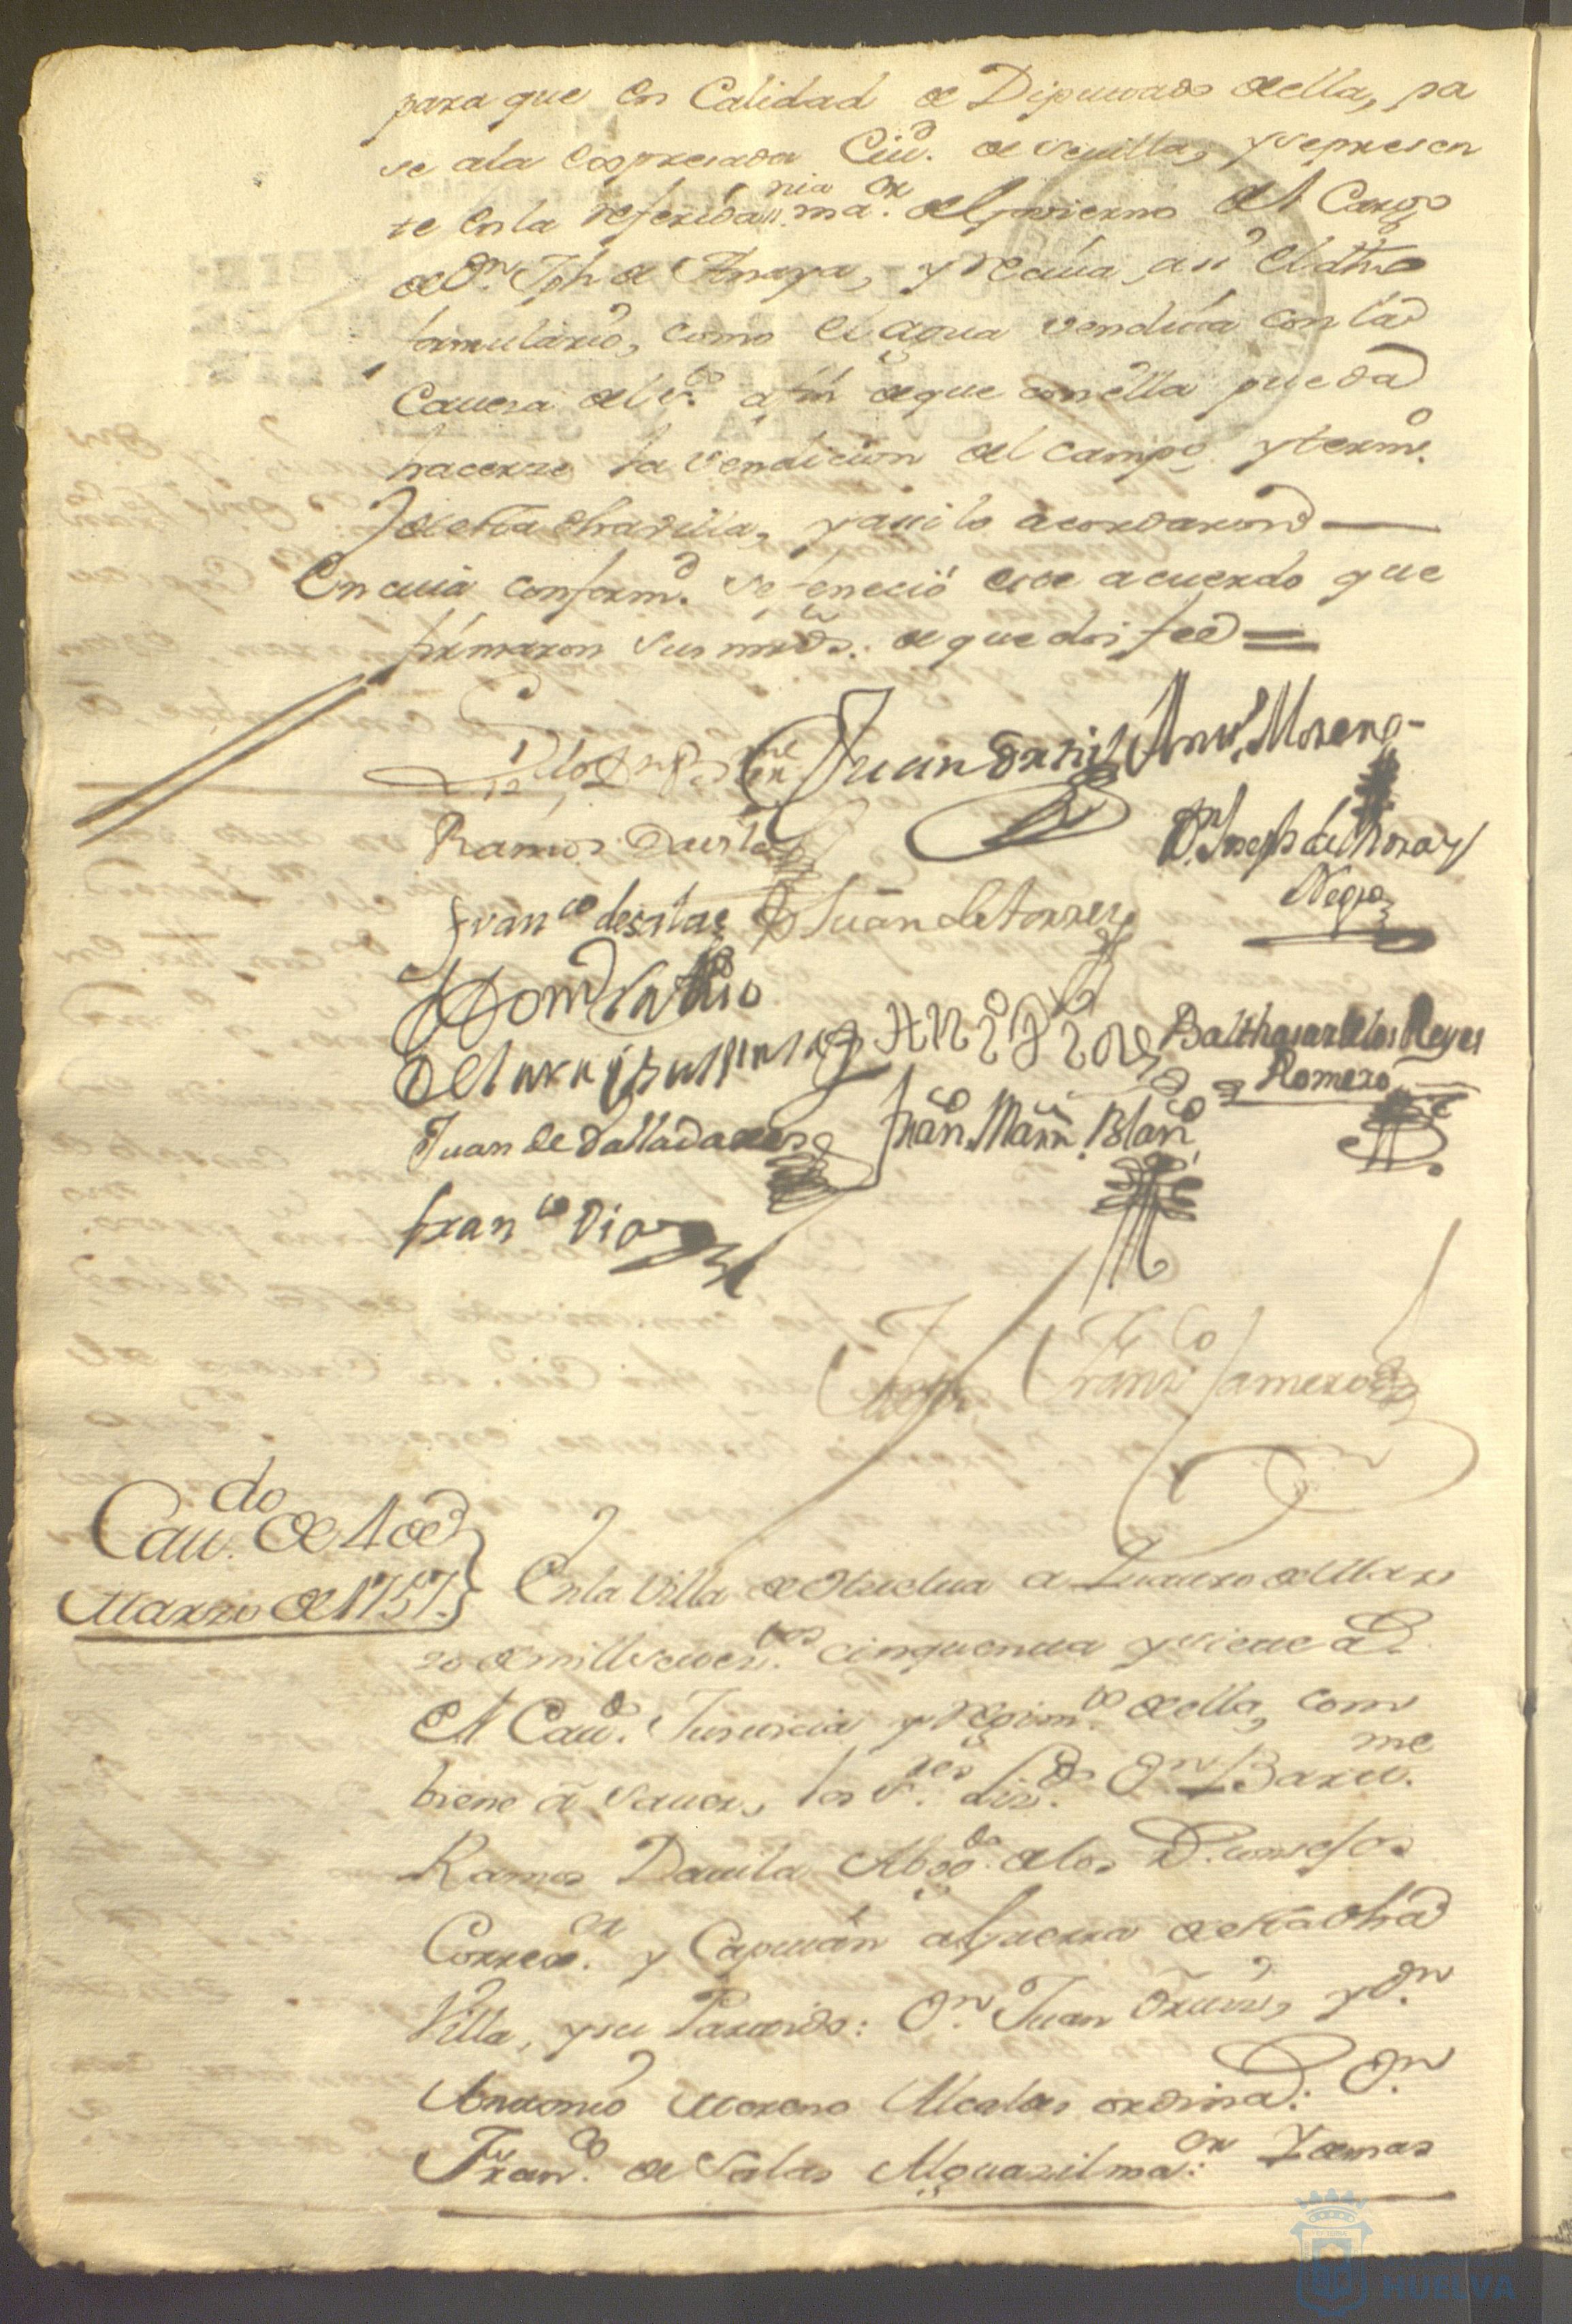 para que en Calidad de Diputado della, pa
se ala Expresada Ciud. de Sevilla, y represen
te en la referida mia. maor. del govierno del Cargo
de Dn. Jph de Anaya, y reciva, asi el dho
formulario, como el agua vendita con la
Cavesa del Sto. a fin de que con ella pueda
hacerse la vendicion del campo y termo.
de esta dha Villa, y assi lo acordaron
En cuia conformd. se feneció este acuerdo que
firmaron sus mrds. de que doi fee =
Ramos Davila
Juan Ortiz
Anto. Moreno
Dn. Joseph de Mora y
Negro
Franco de Salas
Juan de Torres
Balthasar de los Reyes
Romero
Juan de Valladares
Franco. Marn. Blanco
Franco Diaz
Franco Jamero
Cavdo. de 4 de
Marzo de 1757.
En la Villa de Huelva a Quatro de Mar
zo de mill setezos. cinquenta y siete as.
El Cavdo. Justicia y regimto. della, com
biene á saver, los Sres. Lizdo. Dn. Barme.
Ramos Davila Abogdo. de los Rs. consejos
Corregor. y Capitán a guerra de esta dha
Villa, y su Partido: Dn. Juan Ortiz, y Dn.
Antonio Moreno Alcaldes ordinas: Dn.
Franco. de Salas Alguazil maor: Y demas
HUELVA